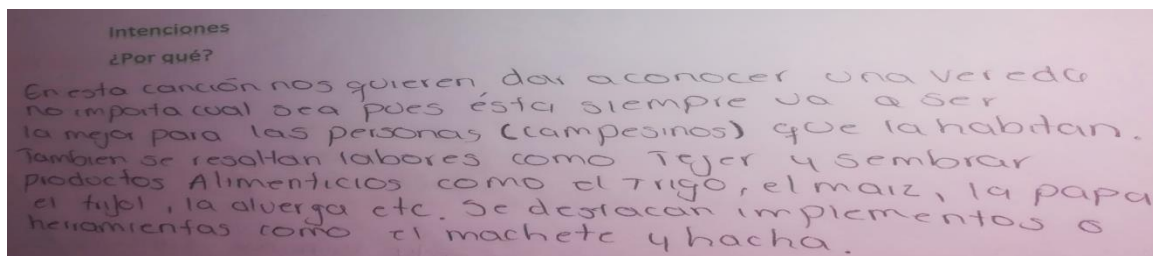 Intenciones
¿Por qué?
En esta canción nos quieren dar aconocer una vereda
no importa cual sea pues ésta siempre va a ser
la mejor para las personas (campesinos) que la habitan.
Tambien se resaltan labores como Tejer y sembrar
productos Alimenticios como el Trigo, el maiz, la papa
el frijol, la alverga etc. Se destacan implementos o
herramientas como el machete y hacha.